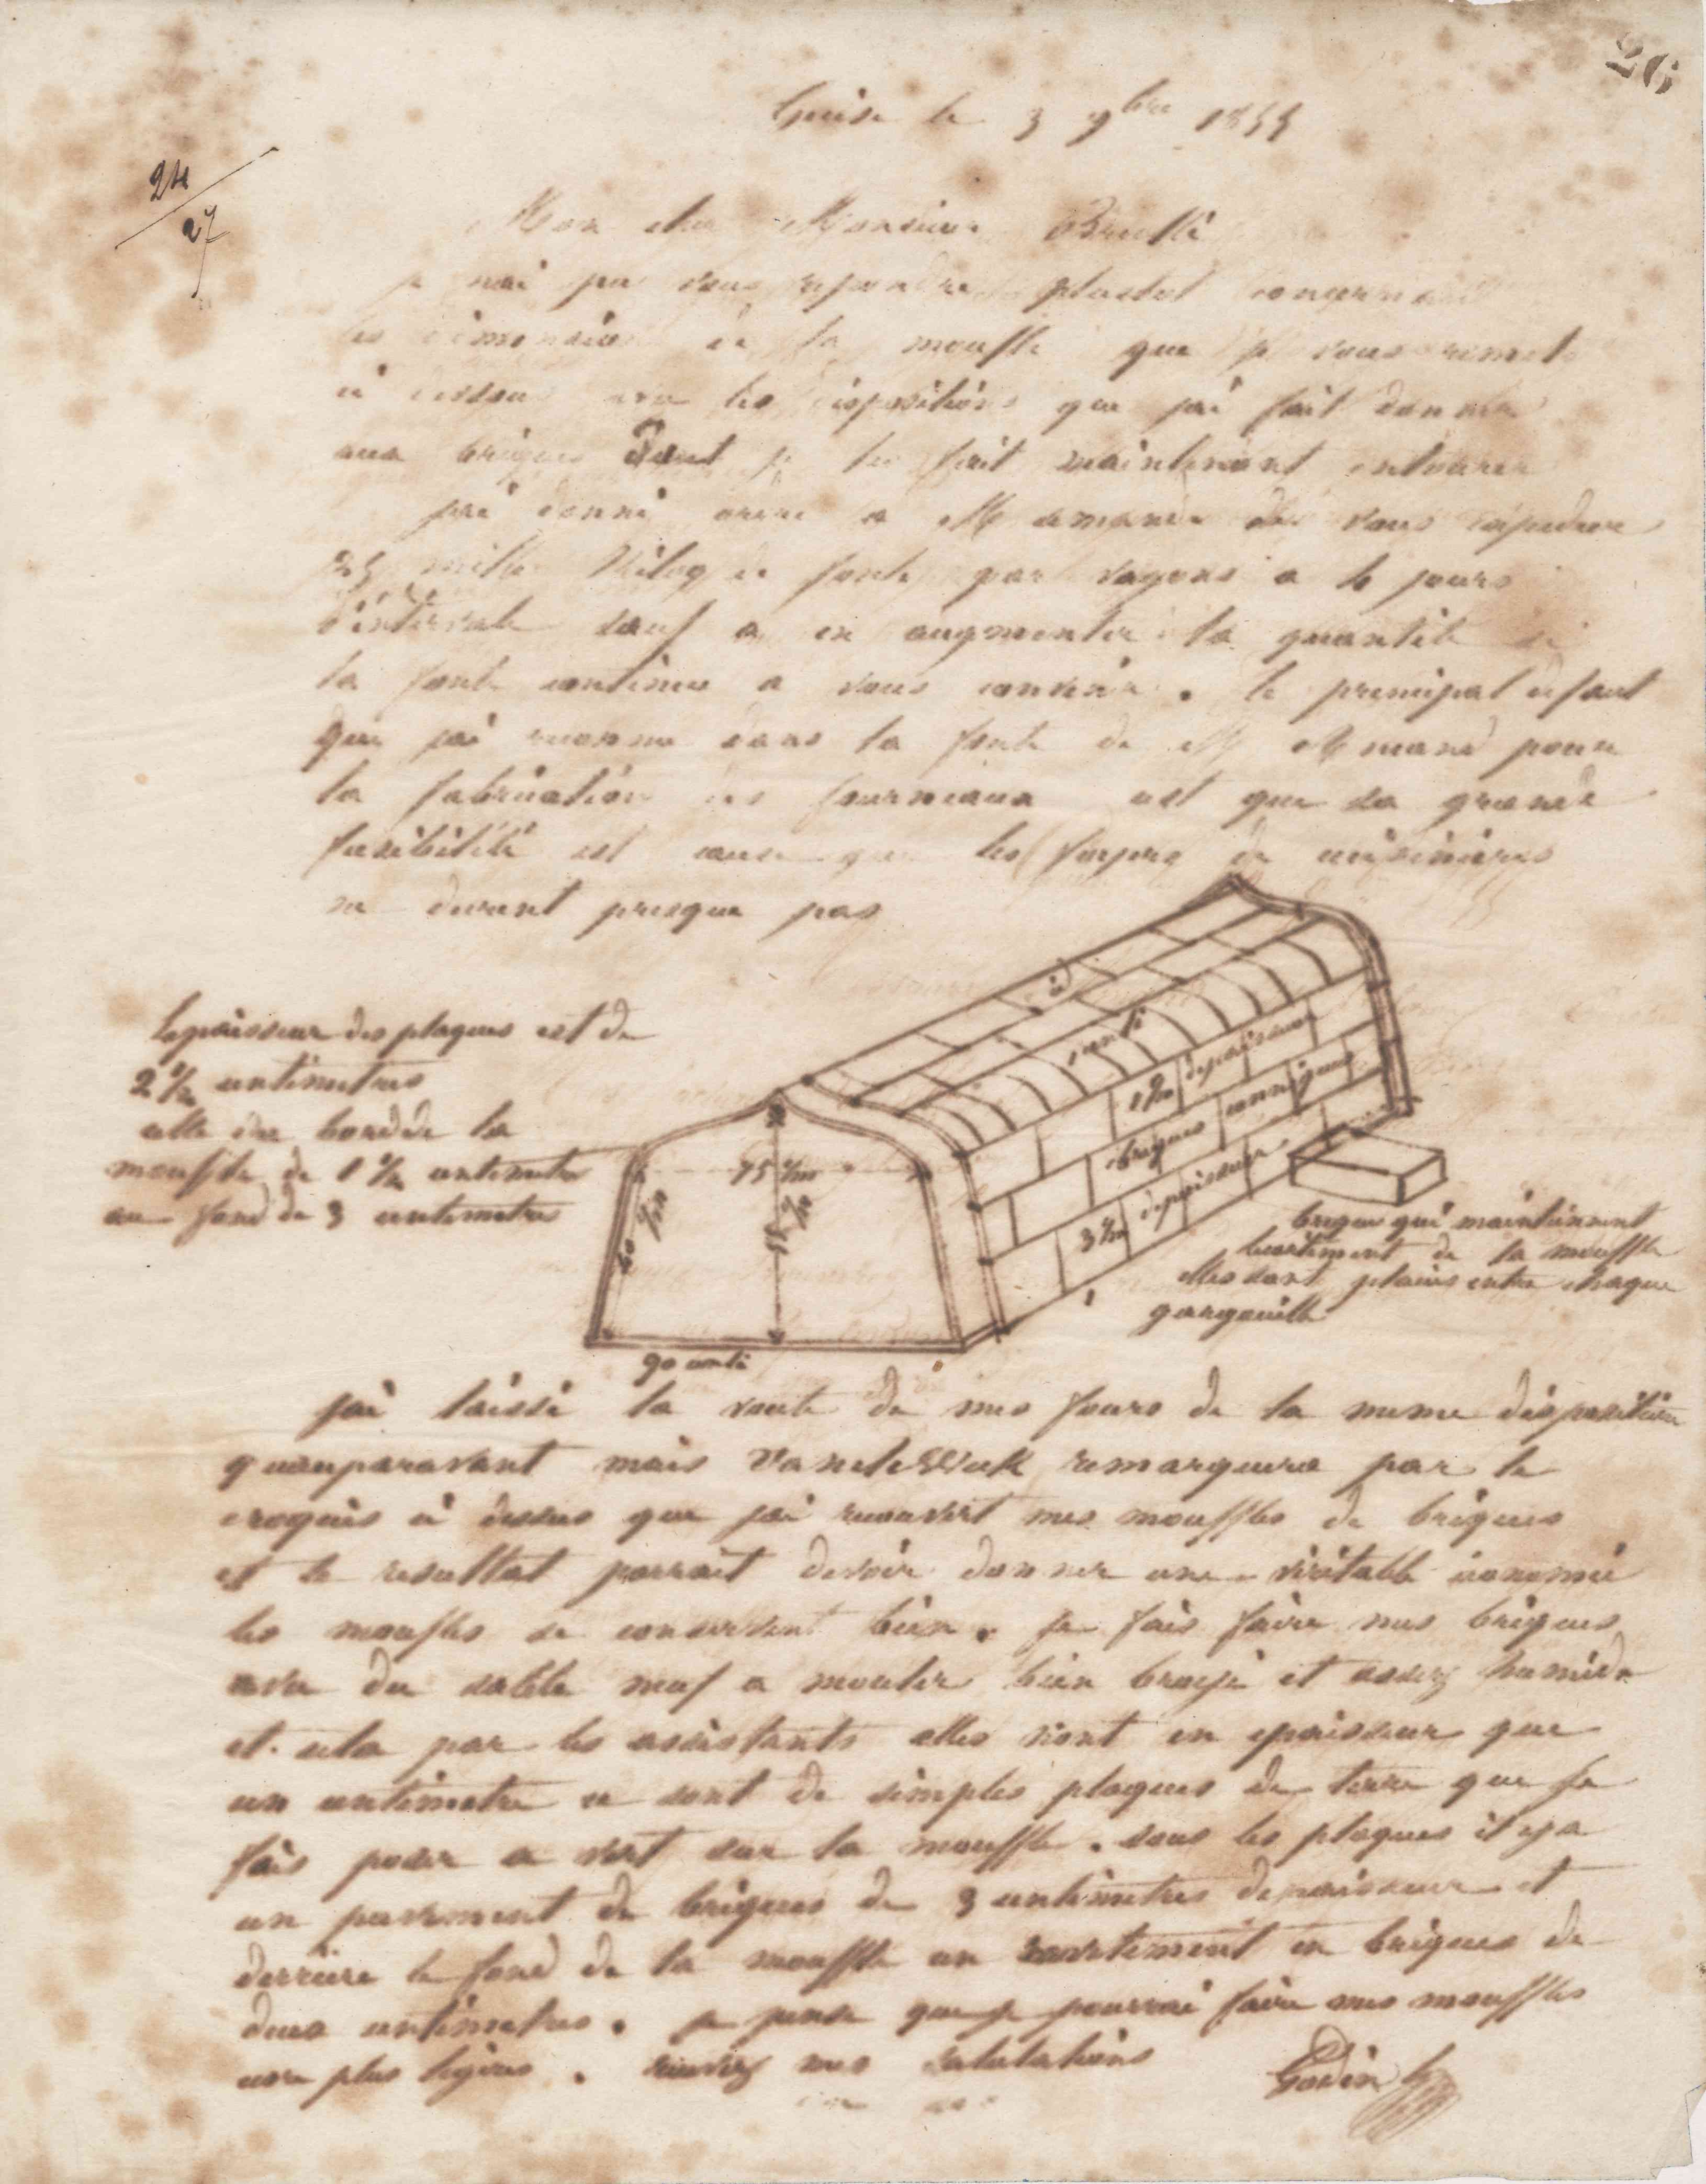 26
Guise le 3 9bre 1855
24
27
Mon cher Monsieur Brullé
je nai pu vous repondre plustot concernant
les dimensions de la moufle que je vous remets
ci dessous avec les dispositions que jai fait donner
aux briques dont je les fait maintenant entourer
jai donné ordre a M amand de vous expedier
25 mille Kilog de fonte par vagons a 4 jours
d'intervale sauf a en augmenter la quantité si
la fonte continue a vous convenir. le principal defaut
que jai reconnu dans la fonte de M Amand pour
la fabrication des fourneaux est que sa grande
fusibilité est cause que les foyers de cuisinieres
ne durent presque pas
lepaisseur des plaques est de
2 1/2 centimetres
celle du bord de la
moufle de 1 1/2 centimetre
au fond de 3 centimetres
75 c/m
90 centi
1 c/m depaisseur
briques
3 c/m depaisseur
briques qui maintiennent
lecartement de la mouffle
elles sont placées entre chaque
gargouille
jai laissé la voute de mes fours de la meme disposition
quauparavant mais remarquera par le
croquis ci dessus que jai recouvert mes mouffles de briques
et le resultat parrait devoir donner une véritable économie
les moufles se conservent bien. je fais faire mes briques
avec du sable neuf a mouler bien broyé et assez humide
et cela par les assistants elles nont en epaisseur que
un centimetre ce sont de simples plaques de terre que je
fais poser a vert sur la mouffle. sous les plaques il y a
un pavement de briques de 3 centimetres depaisseur et
derriere le fond de la mouffle un en briques de
deux centimetres. je pense que je pourrai faire mes mouffles
plus légères. recevez mes salutations
Godin